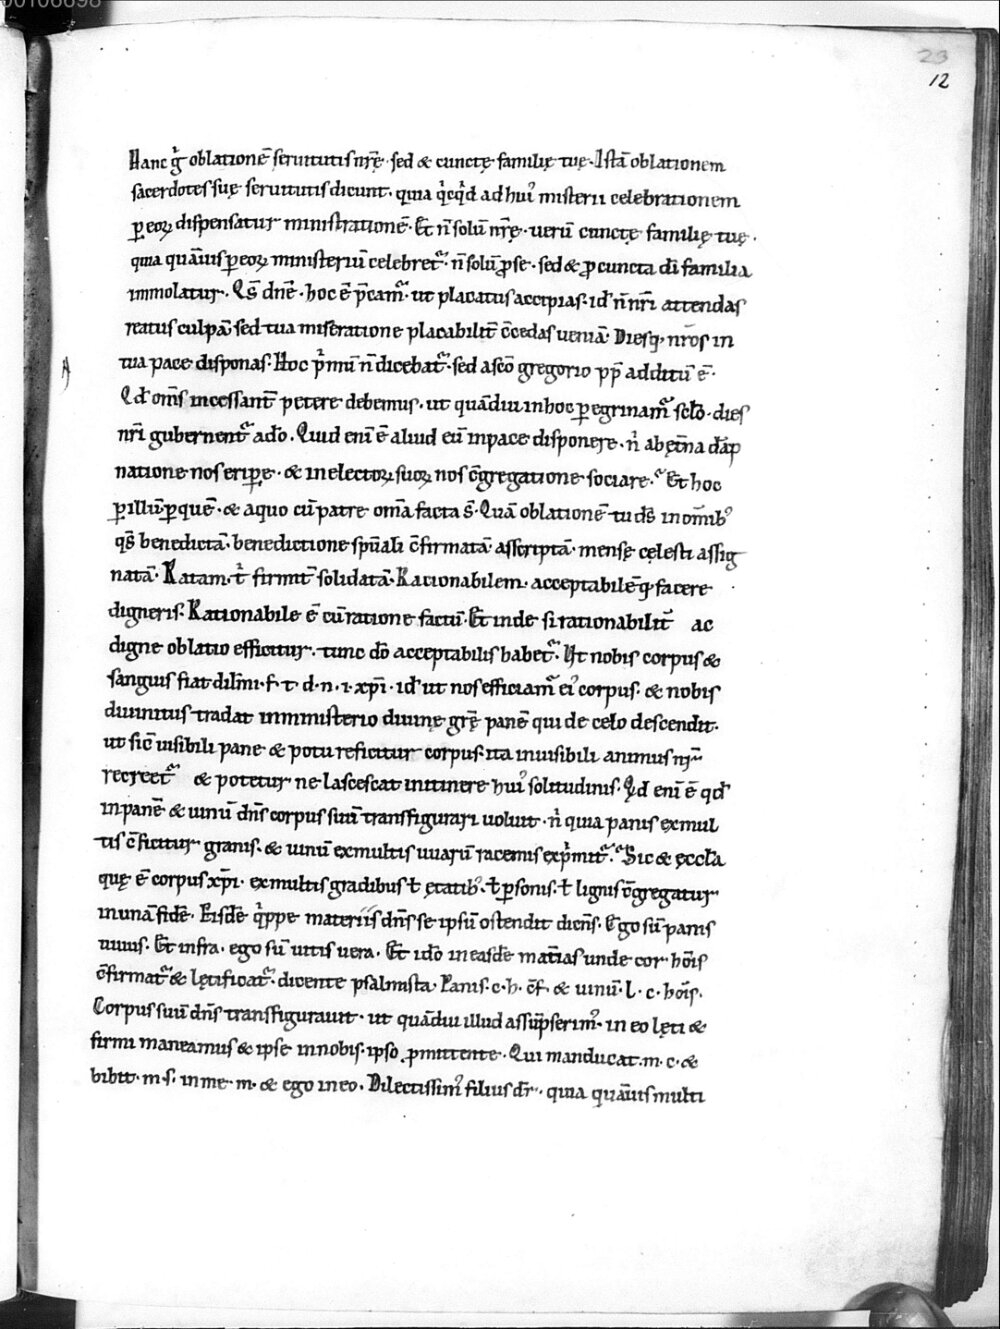 00106698
23
12
Hanc g̉ oblationē seruitutis nr̄ę· sed & cunctę familię tuę· Istā oblationem
sacerdotes suę seruitutis dicunt· quia q̉cq̉d ad huiꝰ misterii celebrationem
ꝑ eoꝝ dispensatur ministrationē· Et n̄ solū nr̄ę· uerū cunctę familię tuę·
quia quāuis ꝑ eoꝝ ministeriū celebret᷑· n̄ solū ꝓ se· sed & ꝓ cuncta dī familia
immolatur· Qs̄ dn̄e· hoc ē p̄cam᷑· ut placatus accipias· id ̄ n̄ nr̄i attendas
reatus culpā· sed tua miseratione placabilit̄ c̄cedas ueniā· Diesq; nr̄os in
tua pace disponas· Hoc p̉mū n̄ dicebat᷑· sed a sc̄o gregorio pp̄ additū ē·
A
Qd̄ om̄s incessant̄ petere debemus· ut quādiu in hoc peregrinam᷑ sc̄lo· dies
nr̄i gubernent᷑ a dō· Quid enī ē aliud eū in pace disponere· n̉ ab ęt̄na dāp
natione nos eripe· & in electoꝝ suoꝝ nos c̄gregatione sociare· Et hoc
ꝑ illū ꝑ quē· & a quo cū patre om̄a facta s̄· Quā oblationē tu ds̄ in om̄ibꝰ
qs̄ benedictā· benedictione sp̄uali c̄firmatā· asscriptā· mensę cęlesti assig
natā· Ratam· t̉ firmit̄ solidatā· Rationabilem· acceptabilēq; facere
digneris· Rationabile ē cū ratione factū· Et inde si rationabilit̄ ac
digne oblatio efficitur· tunc dō acceptabilis habet᷑· Ut nobis corpus &
sanguis fiat dil̄mi· f· t· d· n· i· xp̄i· id ̄ ut nos efficiam᷑ eiꝰ corpus· & nobis
diuinitus tradat in ministerio diuinę gr̄ę panē qui de celo descendit·
ut sic̄ uisibili pane & potu reficitur corpus· ita inuisibili animus nr̄
recreet᷑ & potetur ne lascescat in itinere huiꝰ solitudinis· Qd enī ē qd̄
in panē & uinū dn̄s corpus suū transfigurari uoluit· n̉ quia panis ex mul
tis c̄ficitur granis· & uinū ex multis uuarū racemis exp̉mit᷑· Sic & ęccl̄a
quę ē corpus xp̄i· ex multis gradibus ł ętatibꝰ· ł ꝑsonis· ł lignis c̄gregatur
in unā fidē· Eisdē q̉ppe materiis dn̄s se ipsū ostendit dicn̄s· Ego sū panis
uiuus· Et infra· ego sū uitis uera· Et idō in easdē mat̄ias unde cor· hōis
c̄firmat᷑ & lętificat᷑· dicente psalmista· Panis· c· h· c̄f· & uinū· l· c· hōis·
Corpus suū dn̄s transfigurauit· ut quādiu illud assūpserimꝰ· in eo lęti &
firmi maneamus & ipse in nobis· ipso ꝓmittente· Qui manducat· m· c· &
bibit· m· s· in me· m· & ego in eo· Dilectissimꝰ filius dr̄· quia quāuis multi